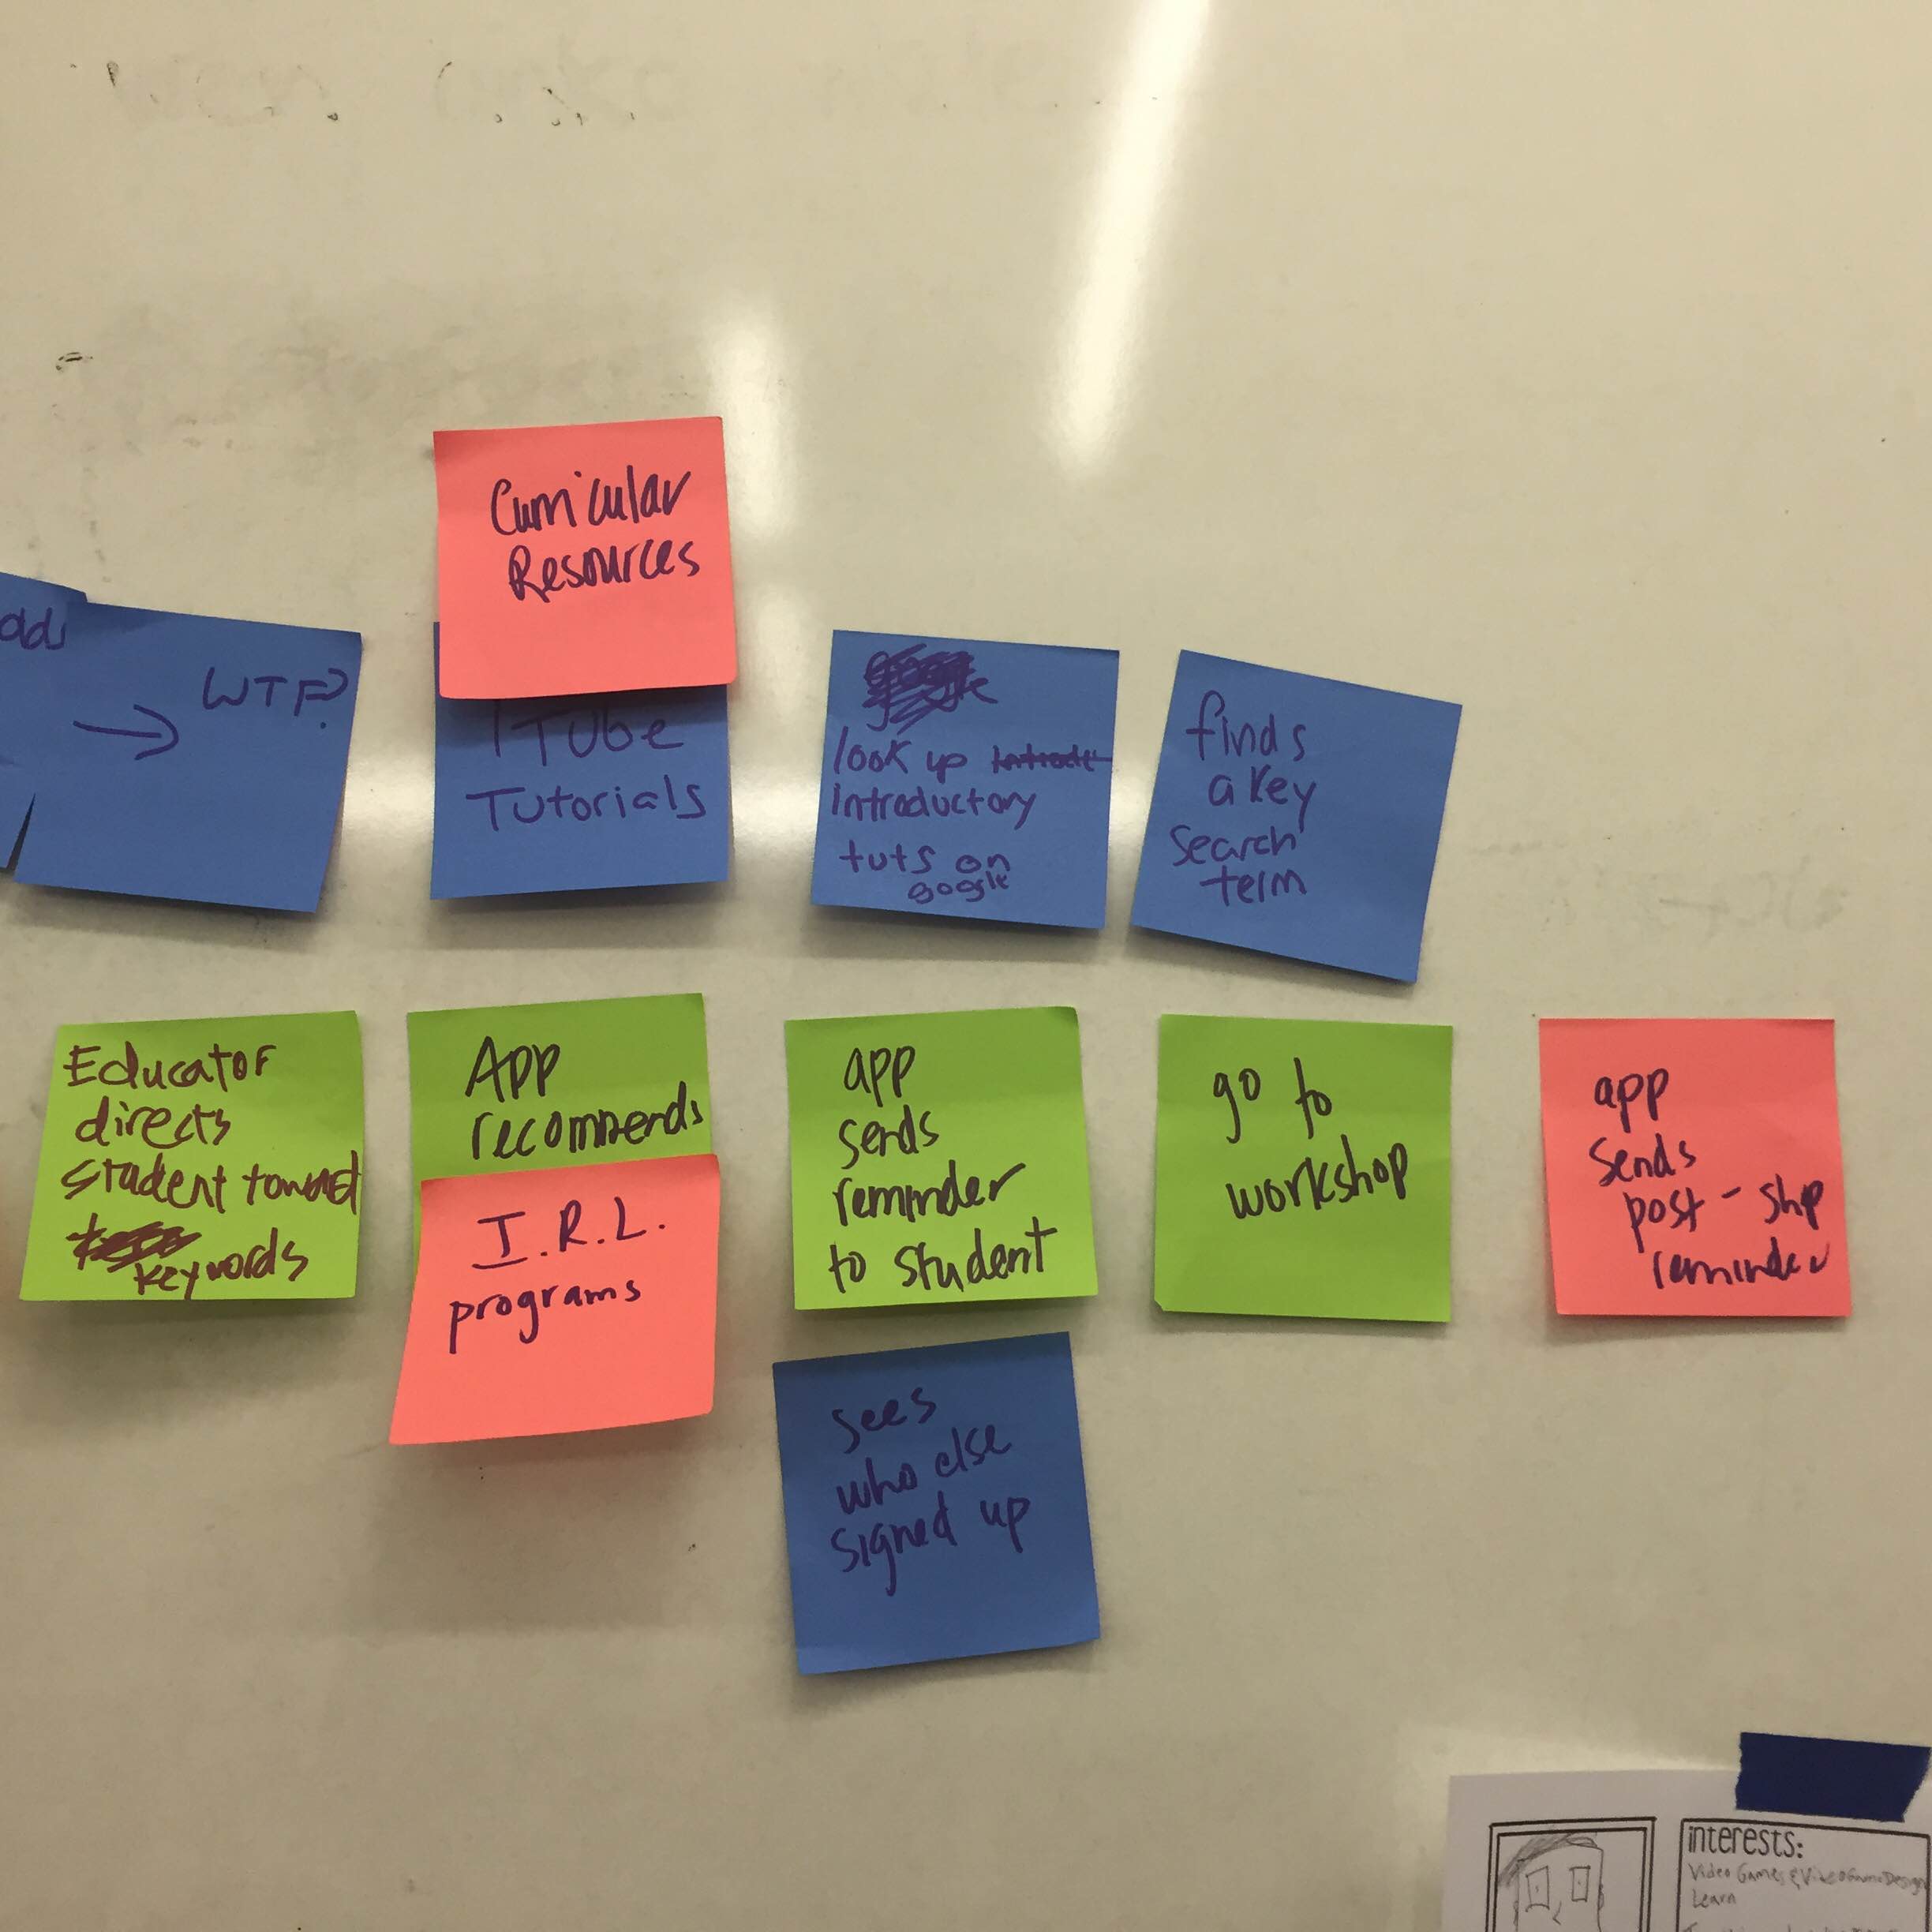 Curricular
Resources
→ WTF?
Tube
Tutorials
look up
Introductory
tuts on
google
finds
a key
search
term
Educator
directs
student toward
keywords
App
recommends
I.R.L.
programs
app
sends
reminder
to student
go to
workshop
app
sends
post-shp
reminder
sees
who else
signed up
interests:
Video Games & Video Game Design
Learn